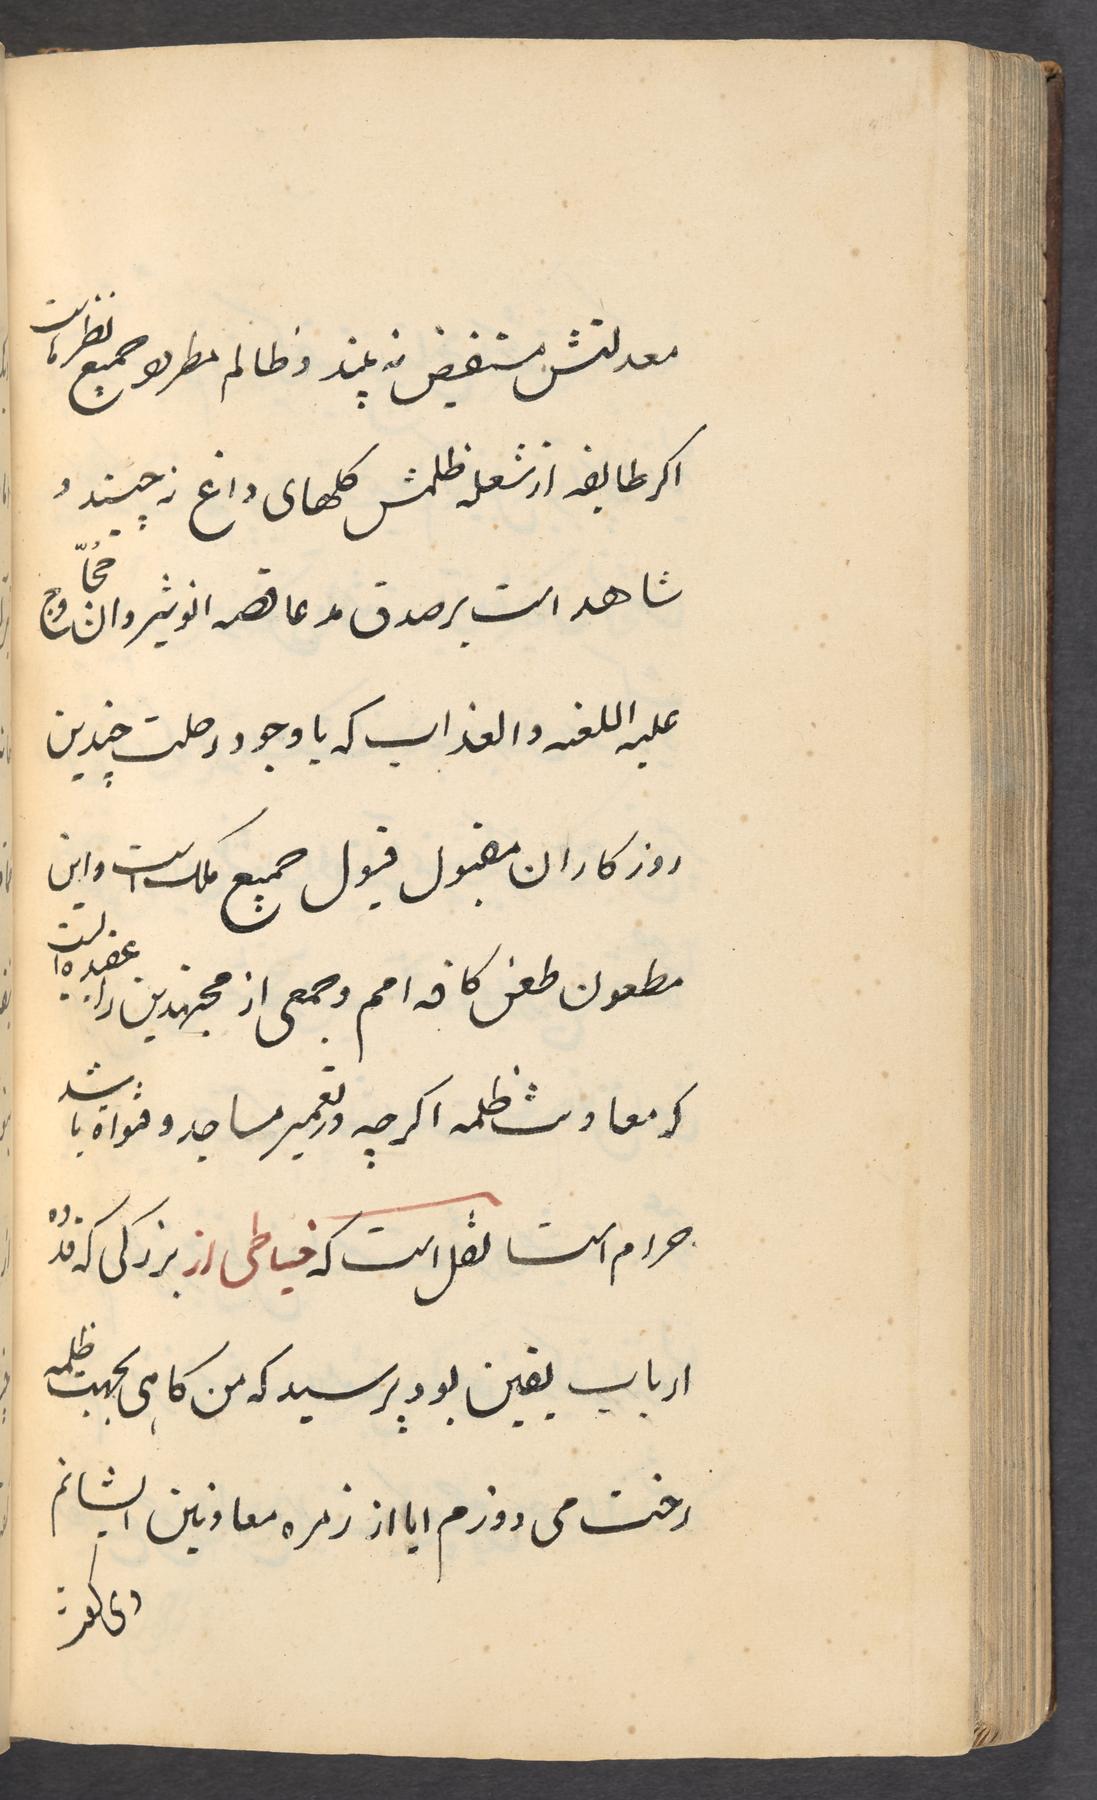 معدلتش مستفیض نه بیند و ظالم مطرود جمیع نظرهاست
اکر طایفه از شعله ظلمش کلهای داغ نه چینند و
شاهد است بر صدق مدعا قصه انوشیروان و حجّاج
علیه اللعنه والعذاب که با وجود رحلت چندین
روزکار ان مقبول قبول جمیع ملل است واین
مطعون طعن کافه امم و جمعی از مجتهدین را عقیده انست
که معاونت ظلمه اکرچه در تعمیر مساجد و قنواة باشد
حرام است نقل است که خیاطی از بزرکی که قدوه
ارباب یقین بود پرسید که من کاهی بجهت ظلمه
رخت می دوزم ایا از زمره معاونین ایشانم
وی کفت